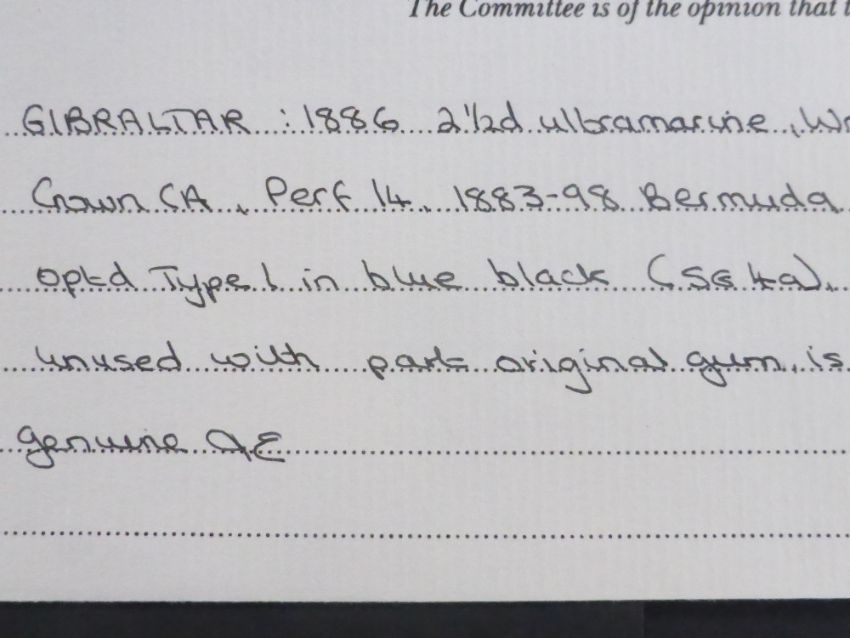 The Committee is of the opinion that t
GIBRALTAR : 1886 2½d ulbramarine, W
Crown CA, Perf 14, 1883-98 Bermuda
optd Type 1 in blue black (SG 4a),
unused with part original gum, is
genuine